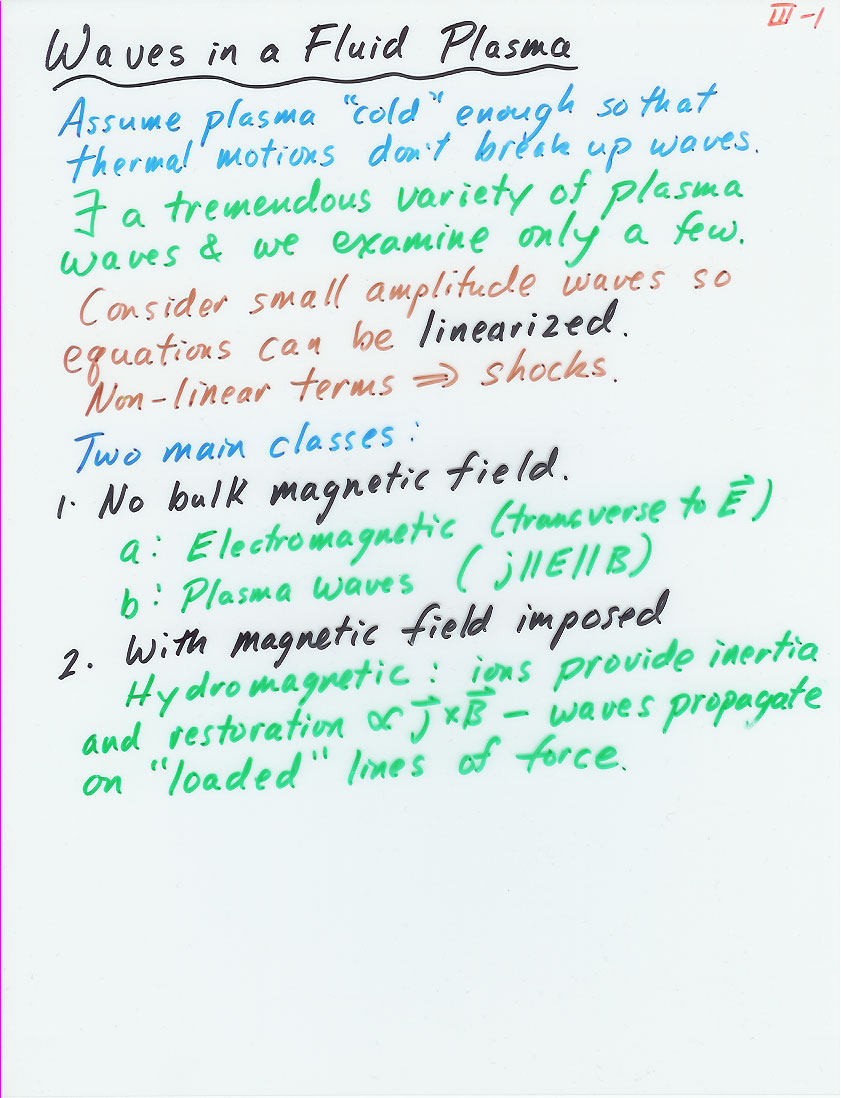 III-1
Waves in a Fluid Plasma
Assume plasma "cold" enough so that
thermal motions don't break up waves.
∃ a tremendous variety of plasma
waves & we examine only a few.
Consider small amplitude waves so
equations can be linearized.
Non-linear terms ⇒ shocks.
Two main classes:
1. No bulk magnetic field.
a: Electromagnetic (transverse to E⃗)
b: Plasma waves (j||E||B)
2. With magnetic field imposed
Hydromagnetic: ions provide inertia
and restoration ∝ j⃗×B⃗ – waves propagate
on "loaded" lines of force.